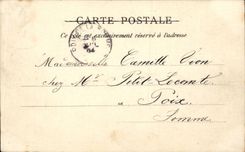 CARTE POSTALE
Ce côté est exclusivement réservé à l'adresse
Mademoiselle Camille Léon
chez Mme Petit-Lecomte
à Poix
Somme